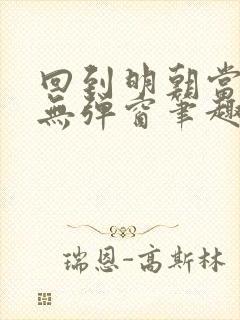 回到明朝當
無彈窗筆趣
瑞恩-高斯林